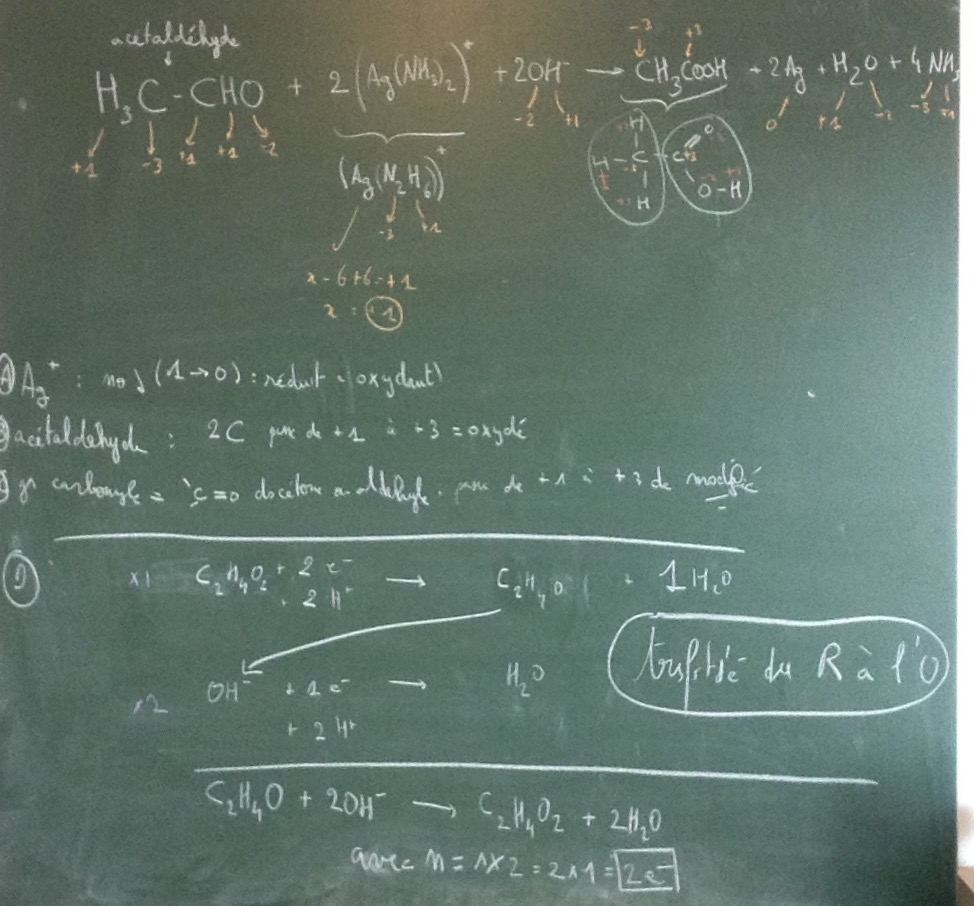 acétaldéhyde
H₃C-CHO + 2(Ag(NH₃)₂)⁺ + 2OH⁻ → CH₃COOH + 2Ag + H₂O + 4NH₃
-3 +3
+1 -3 +1 +1 -2
-2 +1
0 +1 -2 -3 +1
(Ag(N₂H₆))⁺
-3 +1
x - 6 + 6 = +1
x = +1
H
H - C - C O
H O-H
A Ag⁺ : no ↓ (1→0) : réduit (oxydant)
B acétaldehyde : 2C passe de +1 à +3 = oxydé
gr carbonyle = C=O de cétone ou aldehyde. passe de +1 à +3 de modifié
D x1 C₂H₄O₂ + 2 e⁻ → C₂H₄O + 1H₂O
+ 2 H⁺
OH⁻ + 1 e⁻ → H₂O
x2 + 2 H⁺
du R à l'O
C₂H₄O + 2OH⁻ → C₂H₄O₂ + 2H₂O
avec n = 1x2 = 2x1 = 2e⁻